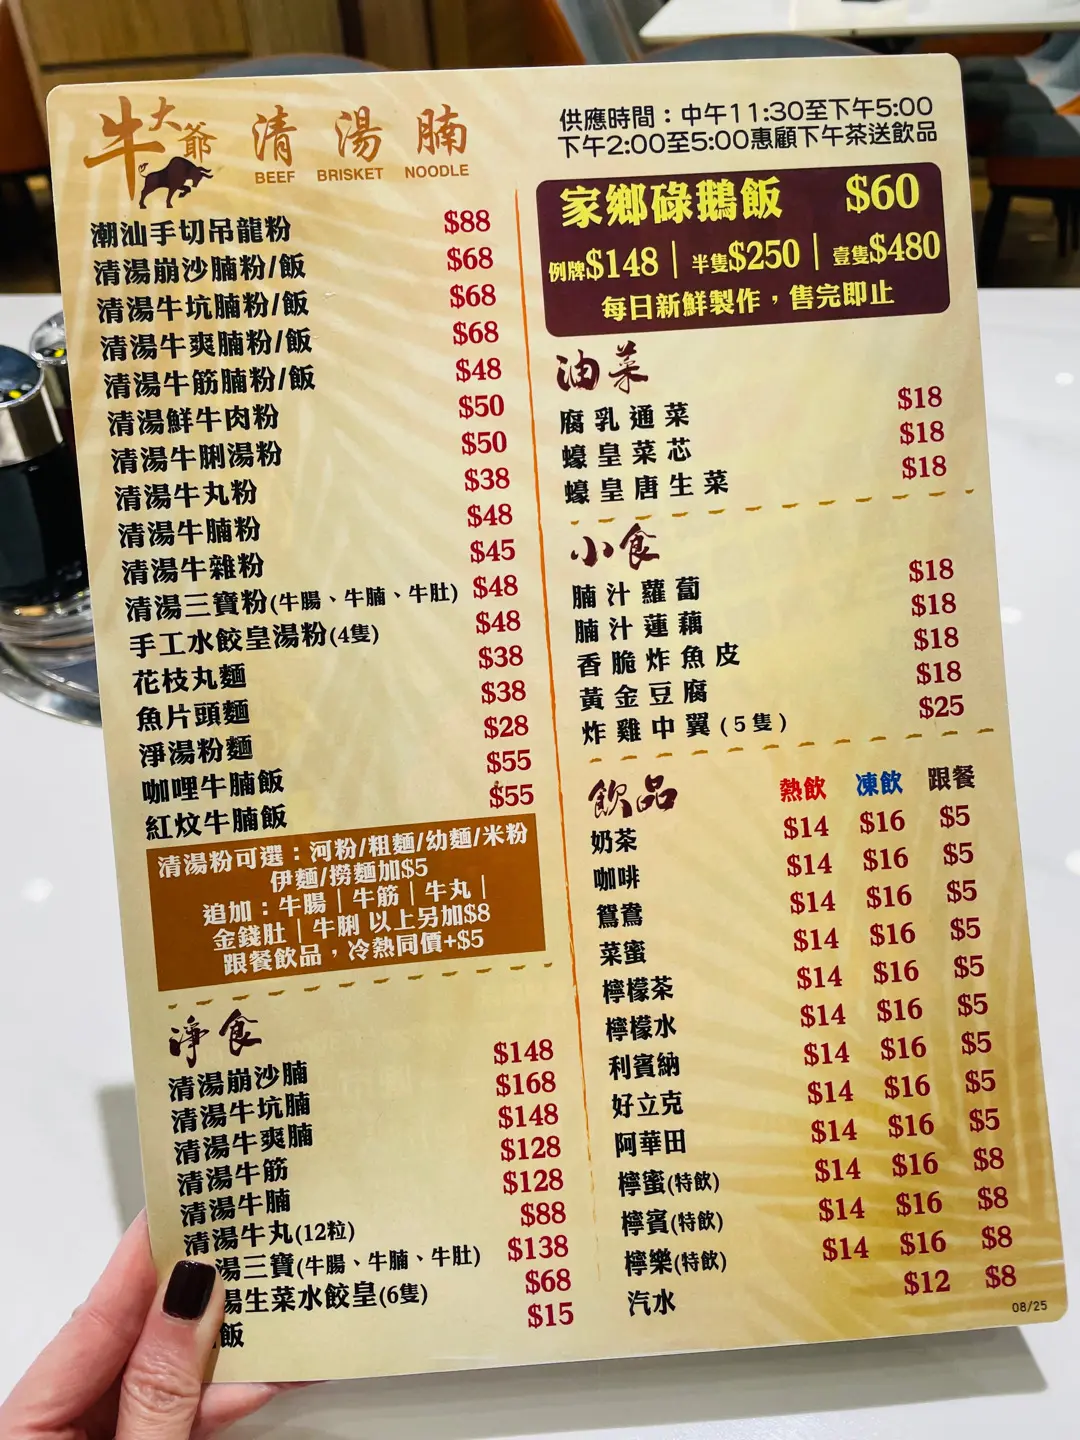 牛大爺 清湯腩
BEEF BRISKET NOODLE
潮汕手切吊龍粉 $88
清湯崩沙腩粉/飯 $68
清湯牛坑腩粉/飯 $68
清湯牛爽腩粉/飯 $68
清湯牛筋腩粉/飯 $48
清湯鮮牛肉粉 $50
清湯牛脷湯粉 $50
清湯牛丸粉 $38
清湯牛腩粉 $48
清湯牛雜粉 $45
清湯三寶粉(牛腸、牛腩、牛肚) $48
手工水餃皇湯粉(4隻) $48
花枝丸麵 $38
魚片頭麵 $38
淨湯粉麵 $28
咖哩牛腩飯 $55
紅炆牛腩飯 $55
清湯粉可選：河粉/粗麵/幼麵/米粉
伊麵/撈麵加$5
追加：牛腸｜牛筋｜牛丸｜
金錢肚｜牛脷 以上另加$8
跟餐飲品，冷熱同價+$5
淨食
清湯崩沙腩 $148
清湯牛坑腩 $168
清湯牛爽腩 $148
清湯牛筋 $128
清湯牛腩 $128
清湯牛丸(12粒) $88
湯三寶(牛腸、牛腩、牛肚) $138
湯生菜水餃皇(6隻) $68
飯 $15
供應時間：中午11:30至下午5:00
下午2:00至5:00惠顧下午茶送飲品
家鄉碌鵝飯 $60
例牌$148｜半隻$250｜壹隻$480
每日新鮮製作，售完即止
油菜
腐乳通菜 $18
蠔皇菜芯 $18
蠔皇唐生菜 $18
小食
腩汁蘿蔔 $18
腩汁蓮藕 $18
香脆炸魚皮 $18
黃金豆腐 $18
炸雞中翼(5隻) $25
飲品 熱飲 凍飲 跟餐
奶茶 $14 $16 $5
咖啡 $14 $16 $5
鴛鴦 $14 $16 $5
菜蜜 $14 $16 $5
檸檬茶 $14 $16 $5
檸檬水 $14 $16 $5
利賓納 $14 $16 $5
好立克 $14 $16 $5
阿華田 $14 $16 $5
檸蜜(特飲) $14 $16 $8
檸賓(特飲) $14 $16 $8
檸樂(特飲) $14 $16 $8
汽水 $12 $8
08/25